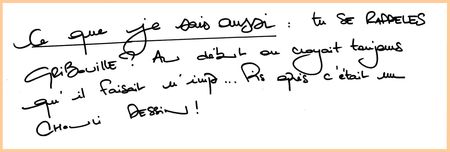 Ce que je sais aussi : tu SE RAPPELES
GRIBOUILLE ? Au début on croyait toujours
qu'il faisait n'imp... Pis après c'était un
CHOULI DESSIN !